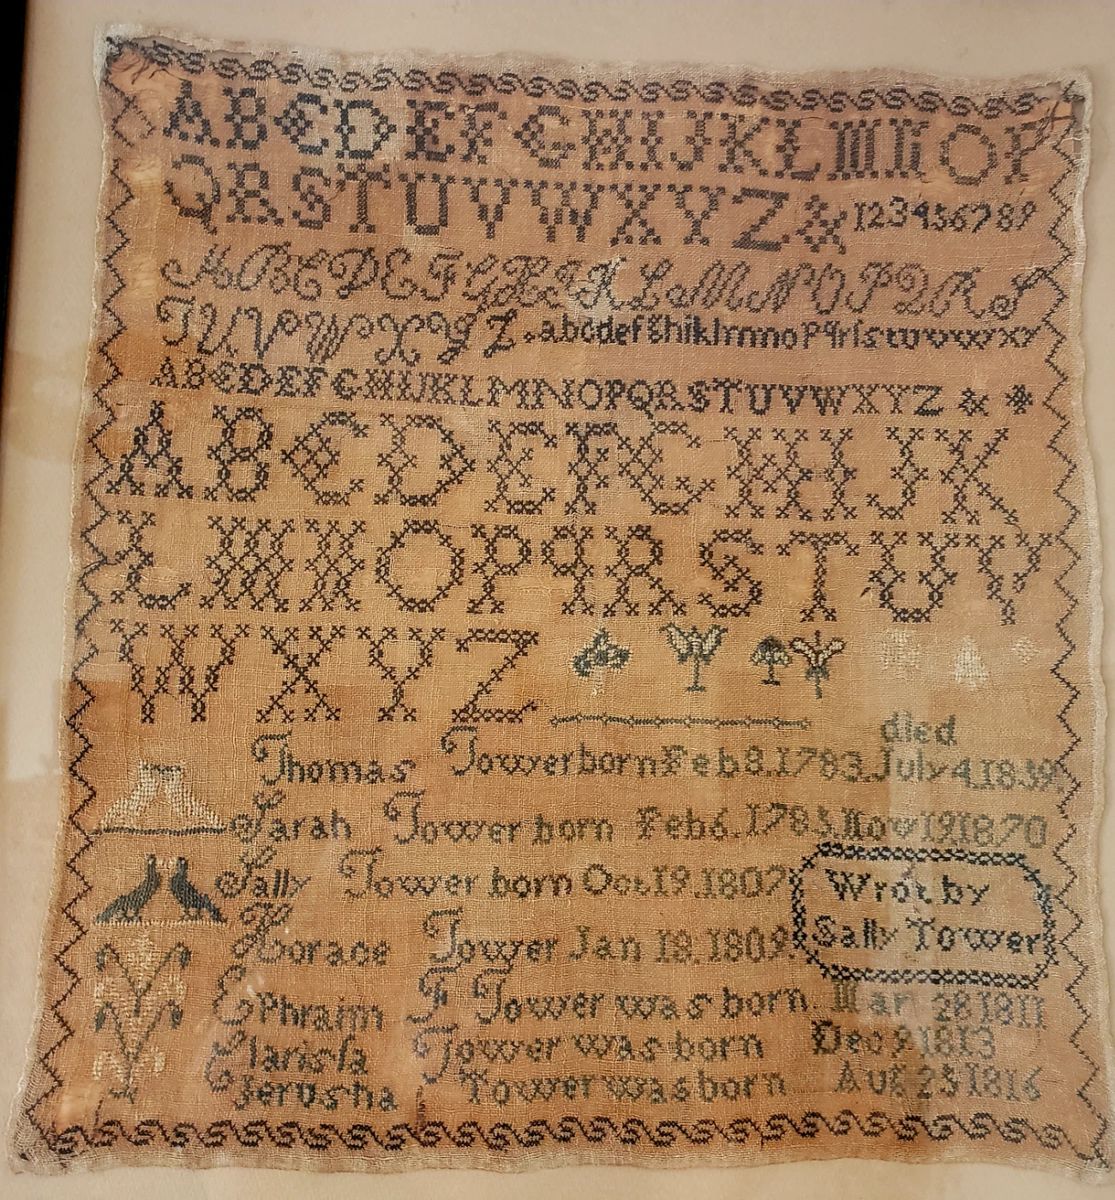 ABCDEFGHIJKLMNOP
QRSTUVWXYZ & 123456789
ABCDEFGHIKLMNOPQRS
TUVWXYZ.abcdefghiklmnopqrſstuvwxy
ABCDEFGHIJKLMNOPQRSTUVWXYZ &
ABCDEFGHIJK
LMNOPQRSTUV
WXYZ
died
Thomas Tower born Feb 8.1783. July 4.1839.
Sarah Tower born Feb 6.1785. Nov 19.1870
Sally Tower born Oct.19.1807.
Wrot by
Sally Tower
Horace Tower Jan 18.1809.
Ephraim F Tower was born. Mar 28 1811
Clarisſa Tower was born Dec 9 1813
Jerusha Tower was born Aug 25 1816